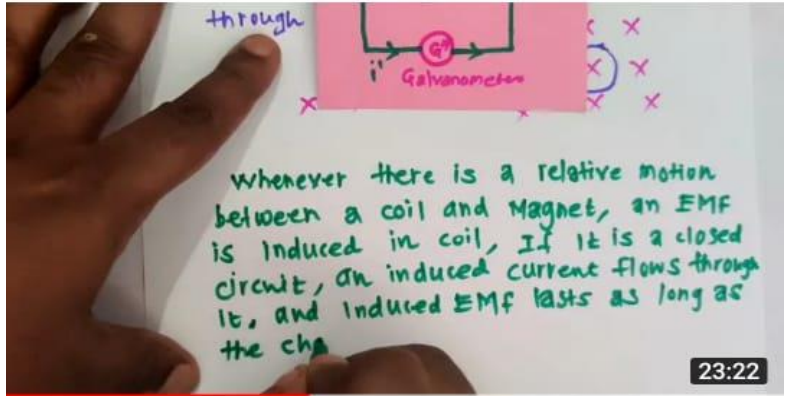 through
G
i'
Galvanometer
x x
x x
x x x x
whenever there is a relative motion
between a coil and Magnet, an EMF
is Induced in coil, If it is a closed
circuit, an induced current flows through
it, and Induced EMF lasts as long as
the cha
23:22